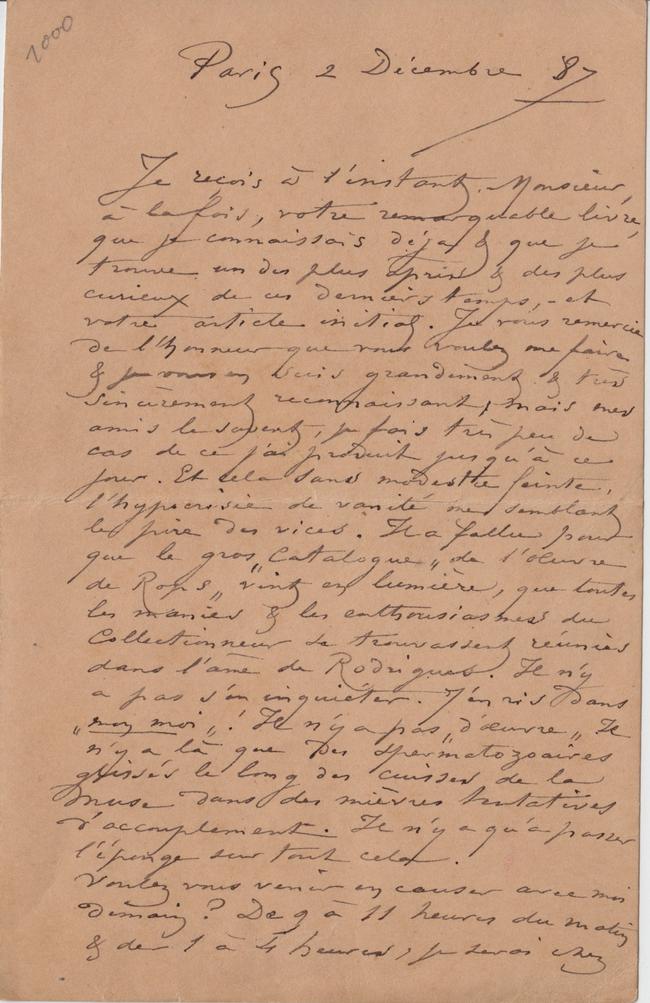 1000
Paris 2 Décembre 87
Je reçois à l'instant, Monsieur,
à la fois, votre remarquable livre,
que je connaissais déjà & que je
trouve un des plus & des plus
curieux de ces derniers temps, - et
votre article initial. Je vous remercie
de l'honneur que vous voulez me faire
& je vous en suis grandement & très
sincèrement reconnaissant, mais mes
amis le savent, je fais très peu de
cas de ce j'ai produit jusqu'à ce
jour. Et cela sans modestie feinte,
l'hypocrisie de vanité me semblant
le pire des vices. Il a fallu pour
que le gros „Catalogue„ de l'Oeuvre
de Rops„ vint en lumière, que toutes
les manies & les enthousiasmes du
Collectionneur se trouvassent réunies
dans l'âme de Rodrigues. Il n'y
a pas s'en inquiéter. J'en ris dans
„mon moi„! Il n'y a pas „d'œuvre„ Il
n'y a là que des spermatozoaires
glissés le long des cuisses de la
Muse dans des mièvres tentatives
d'accouplement. Il n'y a qu'a passer
l'éponge sur tout cela.
Voulez vous venir en causer avec moi
demain? De 9 à 11 heures du matin
& de 1 à 4 heures, je serai chez